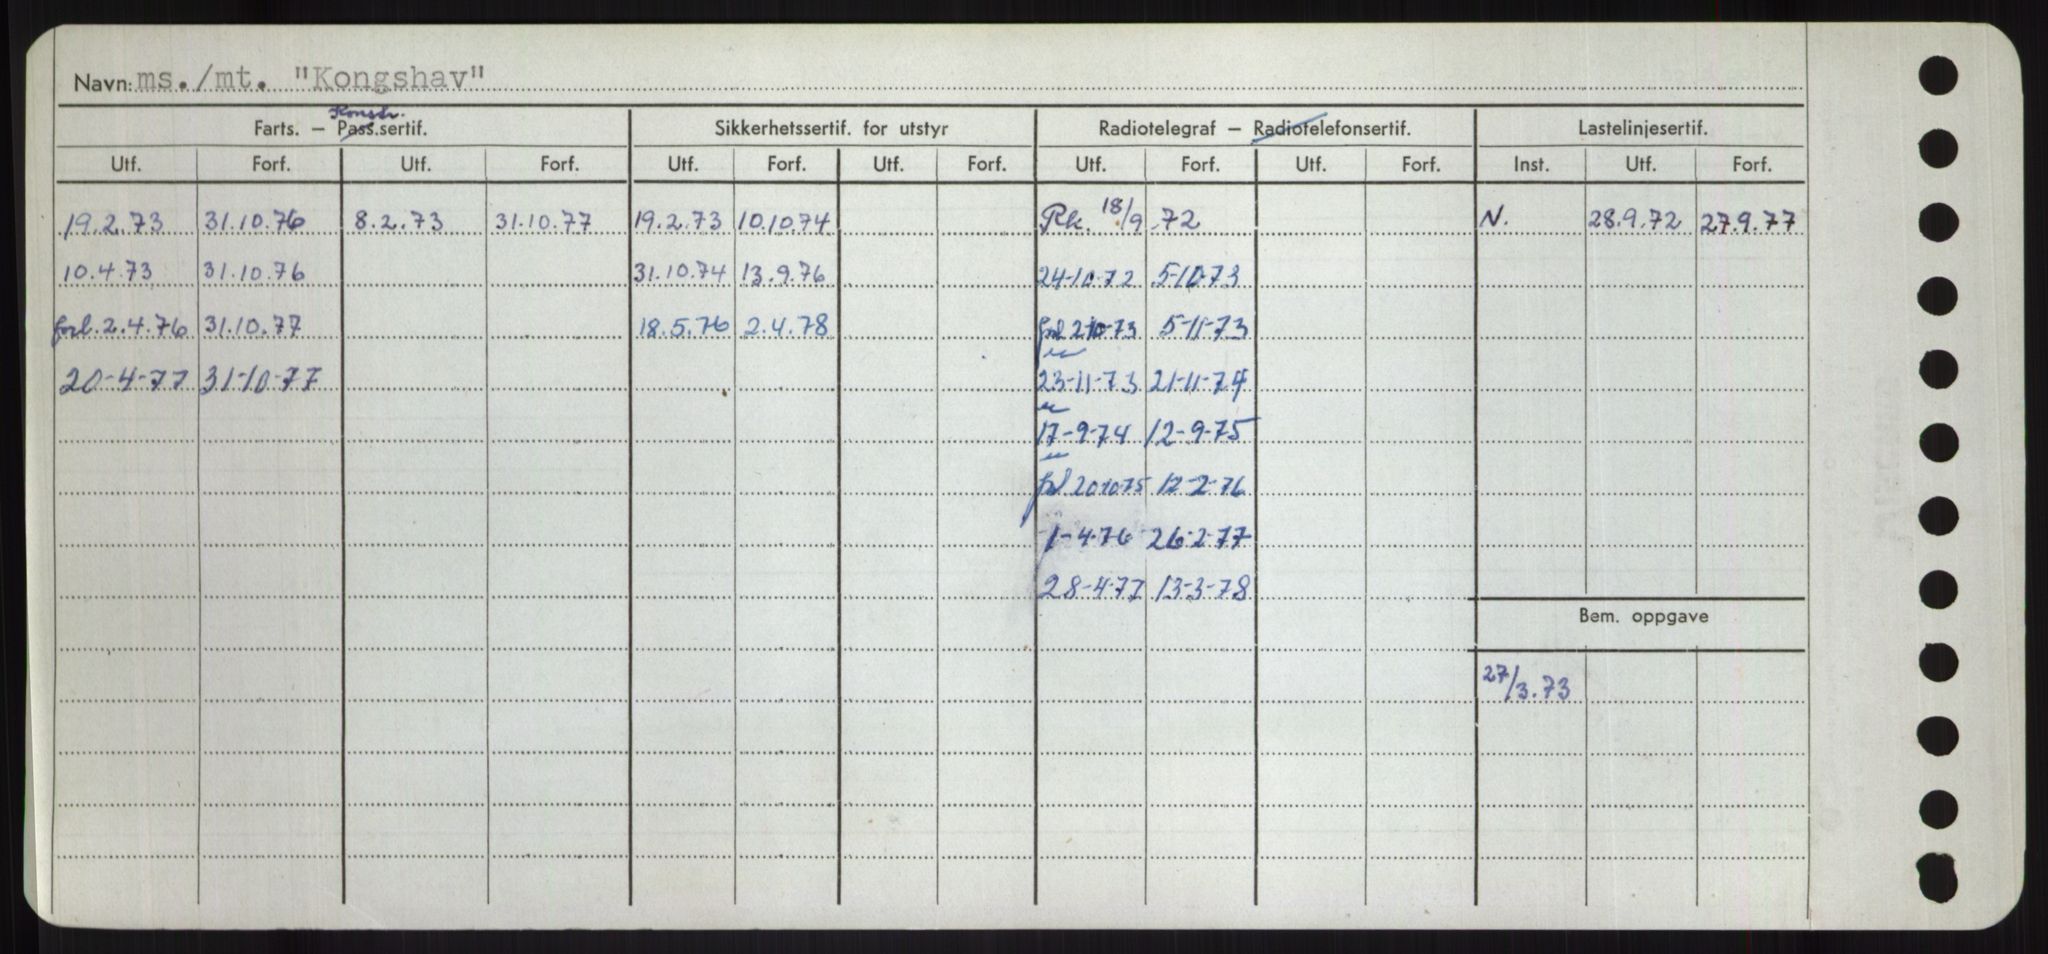 Navn: ms./mt. "Kongshav"
Konstr.
Farts. – Pass.sertif. Sikkerhetssertif. for utstyr Radiotelegraf – Radiotelefonsertif. Lastelinjesertif.
Utf. Forf. Utf. Forf. Utf. Forf. Utf. Forf. Utf. Forf. Utf. Forf. Inst. Utf. Forf.
19.2.73 31.10.76 8.2.73 31.10.77 19.2.73 10.10.74 Rk. 18/9 72 N. 28.9.72 27.9.77
10.4.73 31.10.76 31.10.74 13.9.76 24-10-72 5-10-73
forl. 2.4.76 31.10.77 18.5.76 2.4.78 forl 2-10-73 5-11-73
20-4-77 31-10-77 23-11-73 21-11-74
17-9-74 12-9-75
forl 20-10-75 12-2-76
1-4-76 26-2-77
28-4-77 13-3-78
Bem. oppgave
27/3.73